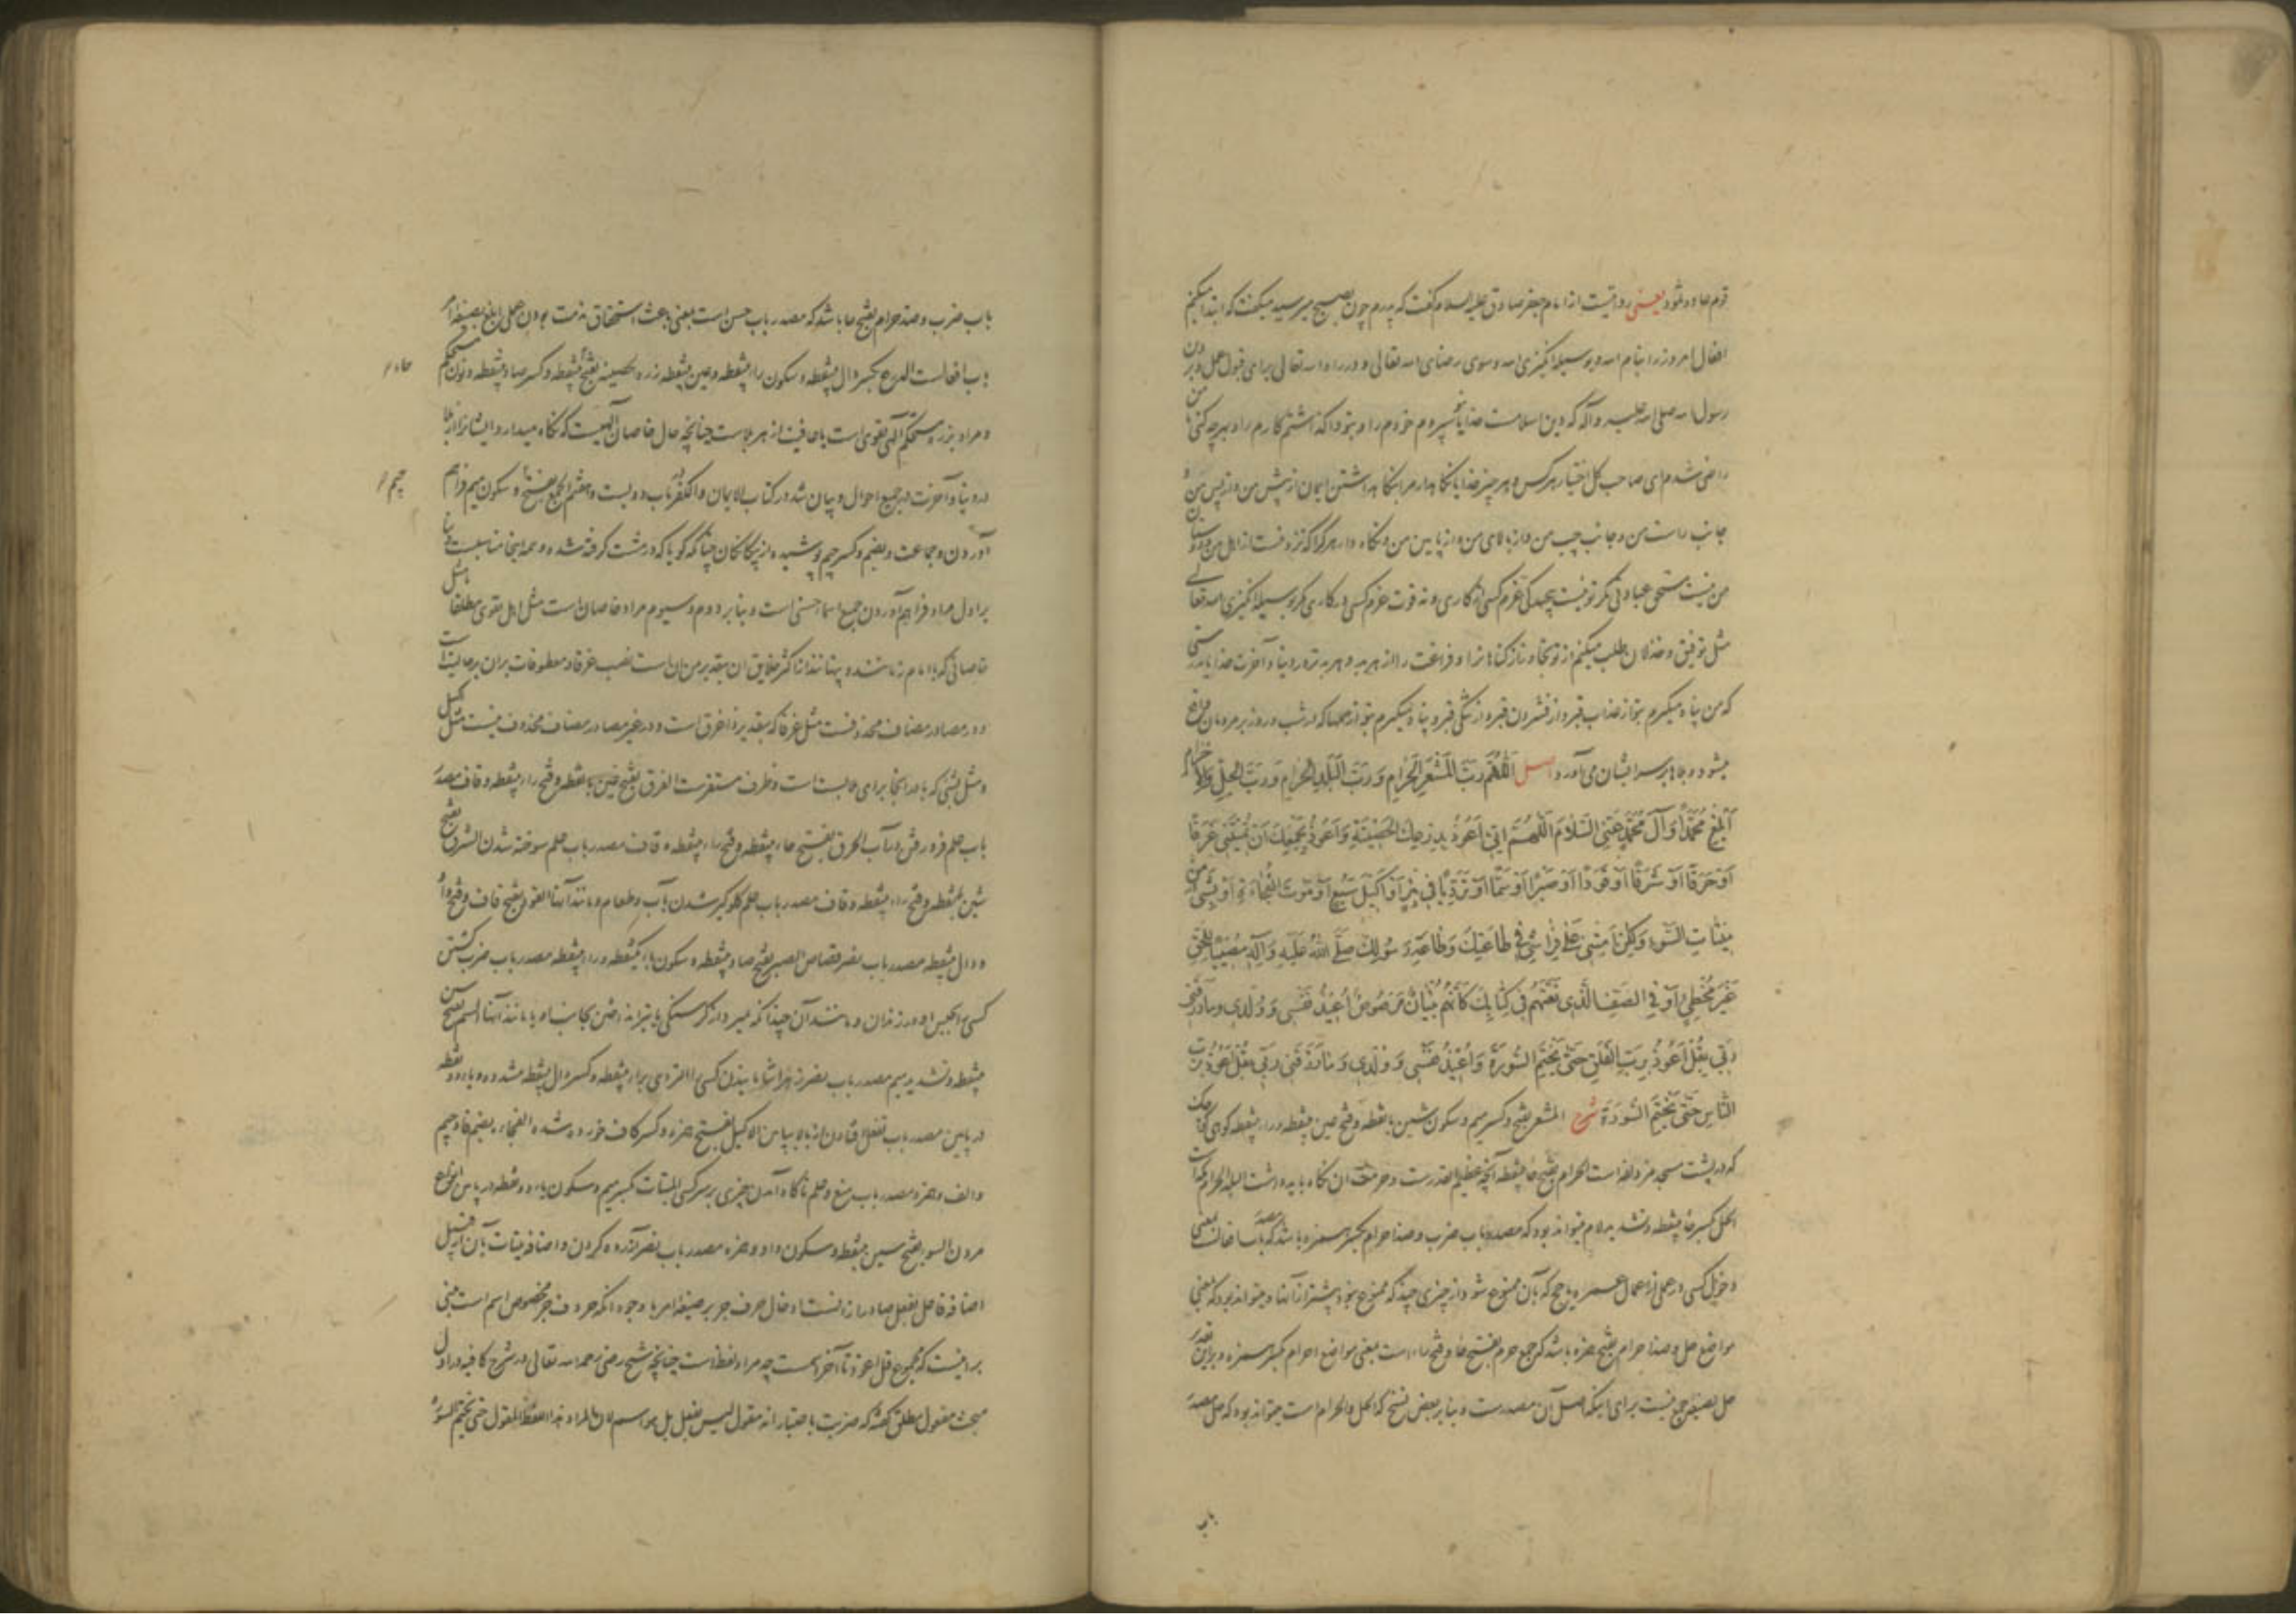 قوم عاد و ثمود یعنی روایتست از امام جعفر صادق علیه السلام گفت که پدرم چون بصبح میرسید میگفت که ابتدا میکنم
افعال امروز را بنام الله و بوسیله انگیزی الله و سوی رضای الله تعالی و در راه الله تعالی برای قبول عمل و بر دین
رسول الله صلی الله علیه و آله که دین اسلامست خدایا بتو سپردم خودم را و بتو واگذاشتم کارم را و بهرچه کنی با من
راضی شدم ای صاحب کل اختیار هر کس و هر چیز خدایا نگاهدار مرا بنگاهداشتن ایمان از پیش من و از پس من و
جانب راست من و جانب چپ من و از بالای من و از پایین من و نگاه دار هر کرا که نزد تست از اهل من
من نیست مستحق عبادتی مگر تو نیست پیچیدگی عزم کسی از کاری و نه قوت عزم کسی در کاری مگر بوسیله انگیزی الله تعالی
مثل توفیق و خذلان طلب میکنم از تو تجاوز از گناهانرا و فراغت را از هر بد و هر بدتر در دنیا و آخرت خدایا بدرستی
که من پناه میگیرم بتو از عذاب قبر و از فشردن قبر و از تنگی قبر و پناه میگیرم بتو از حملها که در شب و روز بر مردمان واقع
میشود و بلاها بر سر ایشان می آورد اصل اللَّهُمَّ رَبَّ المَشْعَرِ الْحَرَامِ وَرَبَّ الْبَلَدِ الْحَرَامِ وَرَبَّ الْحِلِّ وَالْاحْرَامِ
اَبْلِغْ مُحَمَّدًا وَآلَ مُحَمَّدٍ عَنِّي السَّلَامَ اللَّهُمَّ اِنِّي اَعُوذُ بِدِرْعِكَ الْحَصِينَةِ وَاَعُوذُ بِجَمْعِكَ اَنْ تُمِيتَنِي غَرَقًا
اَوْ حَرَقًا اَوْ شَرَقًا اَوْ قَوَدًا اَوْ صَبْرًا اَوْ سَمًّا اَوْ تَرَدِّيًا فِي بِئْرٍ اَوْ اَكِيلَ سَبُعٍ اَوْ مَوْتَ الْفُجَاءَةِ اَوْ بِشَيْءٍ مِنْ
مِيتَاتِ السَّوْءِ وَلَكِنْ اَمِتْنِي عَلَى فِرَاشِي فِي طَاعَتِكَ وَطَاعَةِ رَسُولِكَ صَلَّى اللهُ عَلَيْهِ وَآلِهِ مُصِيبًا لِلْحَقِّ
غَيْرَ مُخْطِئٍ اَوْ فِي الصَّفِّ الَّذِي نَعَتَّهُمْ فِي كِتَابِكَ كَاَنَّهُمْ بُنْيَانٌ مَرْصُوصٌ اُعِيذُ نَفْسِي وَوُلْدِي وَمَا رَزَقَنِي
رَبِّي بِقُلْ اَعُوذُ بِرَبِّ الْفَلَقِ حَتَّى يَخْتِمَ السُّورَةَ وَاُعِيذُ نَفْسِي وَوُلْدِي وَمَا رَزَقَنِي رَبِّي بِقُلْ اَعُوذُ بِرَبِّ
النَّاسِ حَتَّى يَخْتِمَ السُّورَةَ شرح المشعر بفتح و کسر میم و سکون شین بانقطه و فتح عین بینقطه و راء بینقطه کوهی
که در پشت مسجد مزدلفه است الحرام بفتح حاء بینقطه آنچه عظیم القدرست و حرمت آن نگاه باید داشت البلد الحرام مکه است
الحل بکسر حاء بینقطه و تشدید لام میتواند بود که مصدر باب ضرب و ضد احرام بکسر همزه باشد که مصدر باب افعالست بمعنی
دخول کسی در عملی از اعمال عمره یا حج که بآن ممنوع شود از چیزی چند که ممنوع نبود پیشتر از آنها و میتواند بود که بمعنی
مواضع حل و ضد احرام بفتح همزه باشد که جمع حرم بفتح حاء و فتح راء است بمعنی مواضع احرام بکسر همزه و برین تقدیر
حل بصیغه جمع نیست برای اینکه اصل آن مصدرست و بنا بر بعض نسخ که الحل و الحرام است میتواند بود که حل مصدر
باب
باب ضرب و ضد حرام بفتح حا باشد که مصدر باب حسن است بمعنی باعث استحقاق مذمت بودن عملی ابلغ بصیغه امر
باب افعالست الدرع بکسر دال بینقطه و سکون راء بینقطه و عین بینقطه زره الحصینه بفتح حاء بینقطه و کسر صاد بینقطه و نون محکم
حاء
و مراد بزره مستحکم الهی تقوی است یا عافیت از هر بلاست چنانچه حال خاصان آلهیست که نگاه میدارد ایشانرا از بلا
در دنیا و آخرت در جمیع احوال و بیان شد در کتاب الایمان و الکفر در باب دویست و هفتم الجمع بفتح جیم و سکون میم فراهم
جیم
آوردن و جماعت و بضم و کسر جیم پوشیده از بیگانگان چنانکه گویا که در مشت گرفته شده و همه اینجا مناسبست و بنا
بر اول مراد فراهم آوردن جمیع اسماء حسنی است و بنا بر دوم و سیوم مراد خاصان است مثل اهل تقوی مطلقا یا مثل
خاصانی که با امام زمانند و پنهانند از اکثر خلایق ان بتقدیر من ان است نصب غرقا و معطوفات بران بر حالیت است
و در مصادر مضاف محذوفست مثل غرقا که بتقدیر ذا غرق است و در غیر مصادر مضاف محذوف نیست مثل اکیل
و مثل بشیء که باء در اینجا برای ملابست است و ظرف مستقرست الغرق بفتح غین بانقطه و فتح راء بینقطه و قاف مصدر
باب علم فرو رفتن در آب الحرق بفتح حاء بینقطه و فتح راء بینقطه و قاف مصدر باب علم سوخته شدن الشرق بفتح
شین بانقطه و فتح راء بینقطه و قاف مصدر باب علم گلوگیر شدن بآب و طعام و مانند آنها القود بفتح قاف و فتح واو
و دال بینقطه مصدر باب نصر قصاص الصبر بفتح صاد بینقطه و سکون باء یکنقطه و راء بینقطه مصدر باب ضرب کشتن
کسی بحبس او در زندان و مانند آن چندان که میرد از گرسنگی یا بتیر انداختن بجانب او یا مانند آنها السم بفتح سین
بینقطه و تشدید میم مصدر باب نصر زهر خورانیدن کسی را التردی براء بینقطه و کسر دال بینقطه مشدده و یاء دو نقطه
در پایین مصدر باب تفعل افتادن از بالا بپایین الاکیل بفتح همزه و کسر کاف خورده شده الفجاءة بضم فا و جیم
و الف و همزه مصدر باب منع و علم ناگاه آمدن چیزی بر سر کسی المیتات بکسر میم و سکون یاء دو نقطه در پایین انواع
مردن السوء بفتح سین بینقطه و سکون واو و همزه مصدر باب نصر آزرده کردن و اضافه میتات بآن از قبیل
اضافه فاعل بفعل صادر ازانست ادخال حرف جر بر صیغه امر با وجود آنکه حروف جر مخصوص اسم است مبنی
بر اینست که مجموع قل اعوذ تا آخر اسمست چه مراد لفظ است چنانچه شیخ رضی رحمه الله تعالی در شرح کافیه در اول
مبحث مفعول مطلق گفته که ضربت باعتبار انه مقول لیس بفعل بل هو اسم لان المراد هذا اللفظ المقول حتی یختم السورة